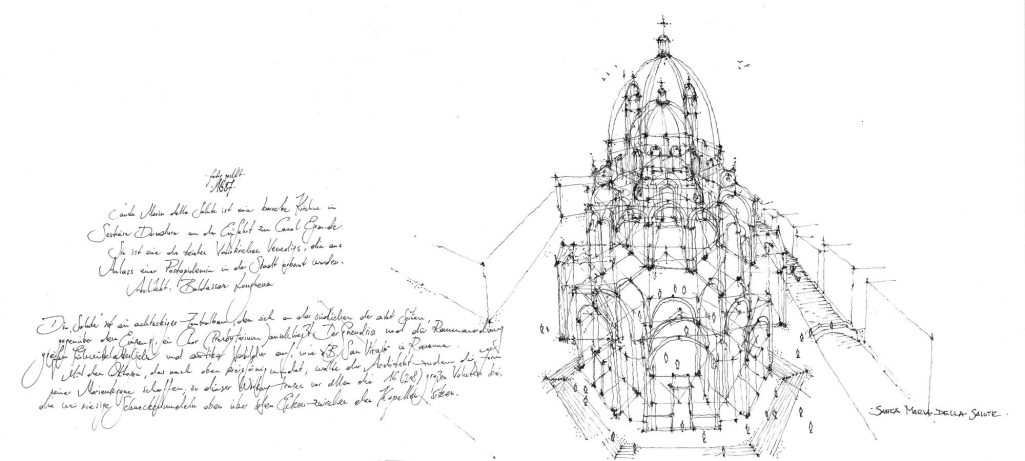 fertig gestellt
1687
Santa Maria della Salute ist eine barocke Kirche im
Sestiere Dorsoduro an der Einfahrt zum Canal Grande
Sie ist eine der sechs Votivkirchen Venedigs, die aus
Anlass einer Pestepidemie in der Stadt erbaut wurden.
Architekt: Baldassar Longhena
Die Salute ist ein achteckiger Zentralbau, an der sich an der südlichen der acht Seiten,
gegenüber dem Eingang, ein Chor (Presbyterium) anschließt. Der Grundriss und die Raumanordnung
greifen und antike Vorbilder auf, wie z.B. San Vitale in Ravenna.
Mit dem Oktagon, das nach oben mündet, wollte der Architekt die Form
einer Marienkrone schaffen. zu dieser Wirkung tragen vor allem die 16 großen Voluten bei,
die wie riesige Schneckennudeln oben über den Ecken zwischen den Kapellen sitzen.
SANTA MARIA DELLA SALUTE